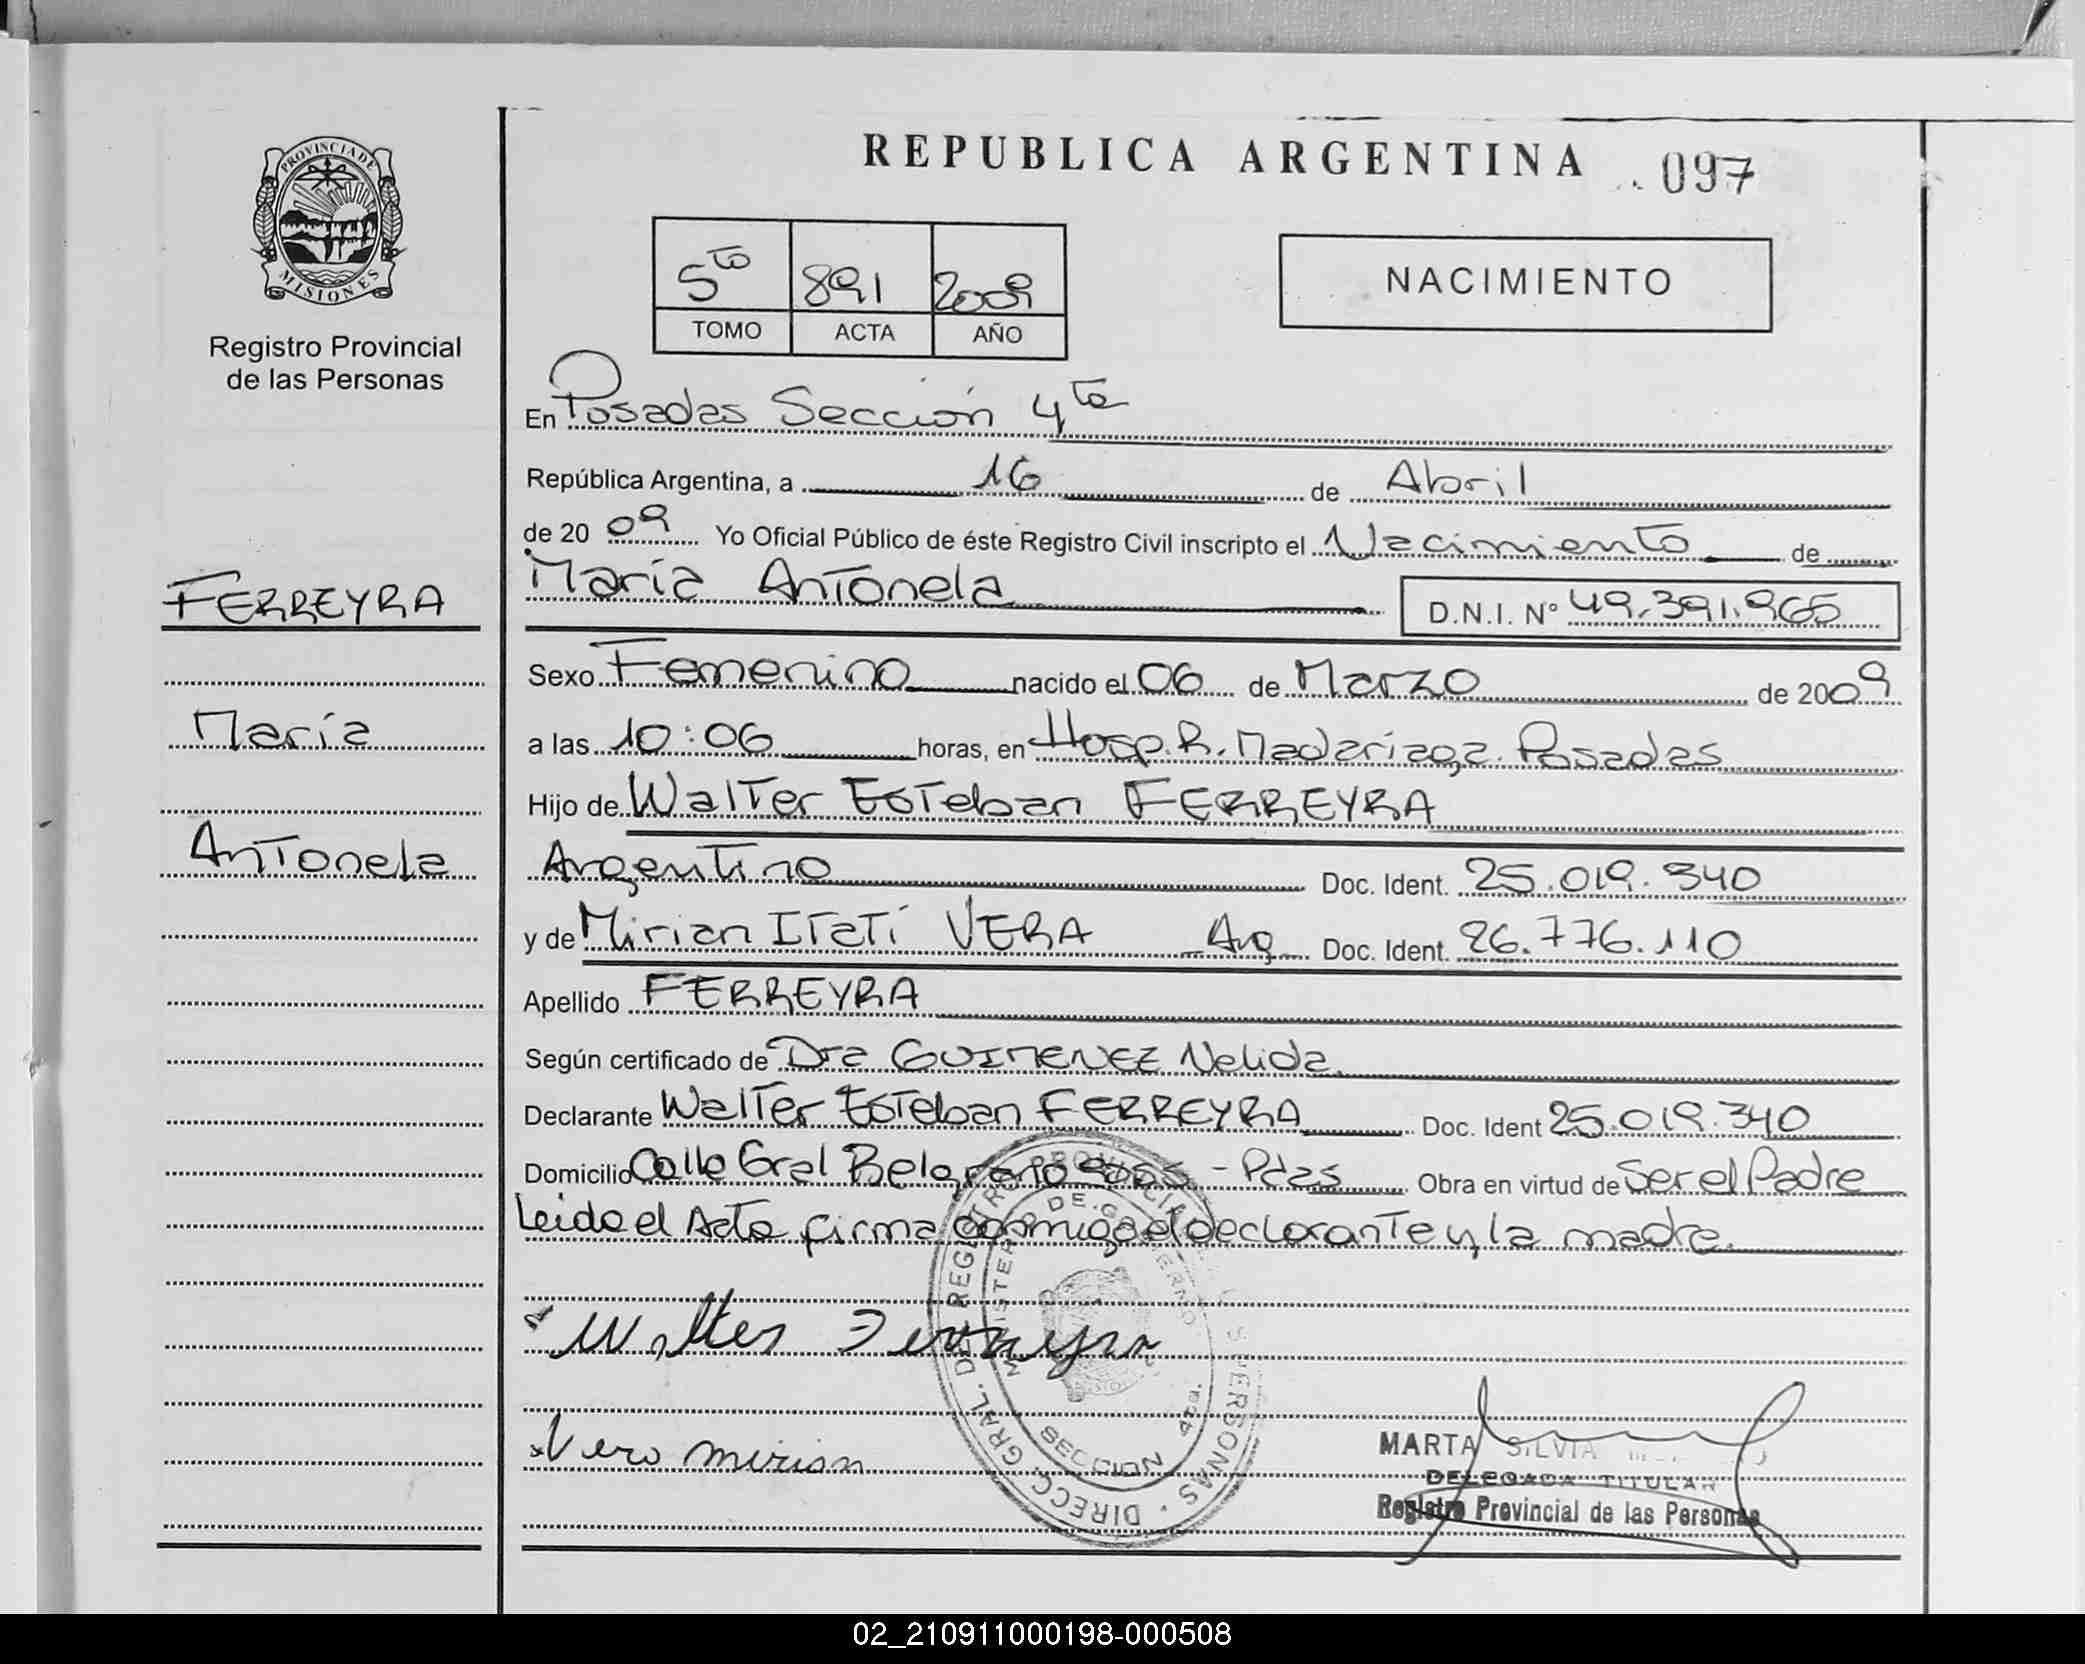 REPUBLICA ARGENTINA
097
PROVINCIA DE
MISIONES
Registro Provincial
de las Personas
5to 891 2009
TOMO ACTA AÑO
NACIMIENTO
En Posadas Sección 4ta
República Argentina, a 16 de Abril
de 2009 Yo Oficial Público de éste Registro Civil inscripto el Nacimiento de
FERREYRA
María
Antonela
María Antonela D.N.I. Nº 49.391.965
Sexo Femenino nacido el 06 de Marzo de 2009
a las 10:06 horas, en Hosp. R. Madariaga. Posadas
Hijo de Walter Esteban FERREYRA
Argentino Doc. Ident. 25.019.340
y de Mirian Itatí VERA Arg Doc. Ident. 26.776.110
Apellido FERREYRA
Según certificado de Dra GUIMENEZ Nelida
Declarante Walter Esteban FERREYRA Doc. Ident 25.019.340
Domicilio Calle Gral Belgrano - Pdas Obra en virtud de Ser el Padre
Leida el Acta firma conmigo el declarante y la madre.
Walter Ferreyra
Vera mirian
DIRECC. GRAL. DEL REGISTRO PROVINCIAL PERSONAS
MINISTERIO DE GOBIERNO
SECCION 4ta.
MARTA SILVIA
DELEGADA TITULAR
Registro Provincial de las Personas
02_210911000198-000508